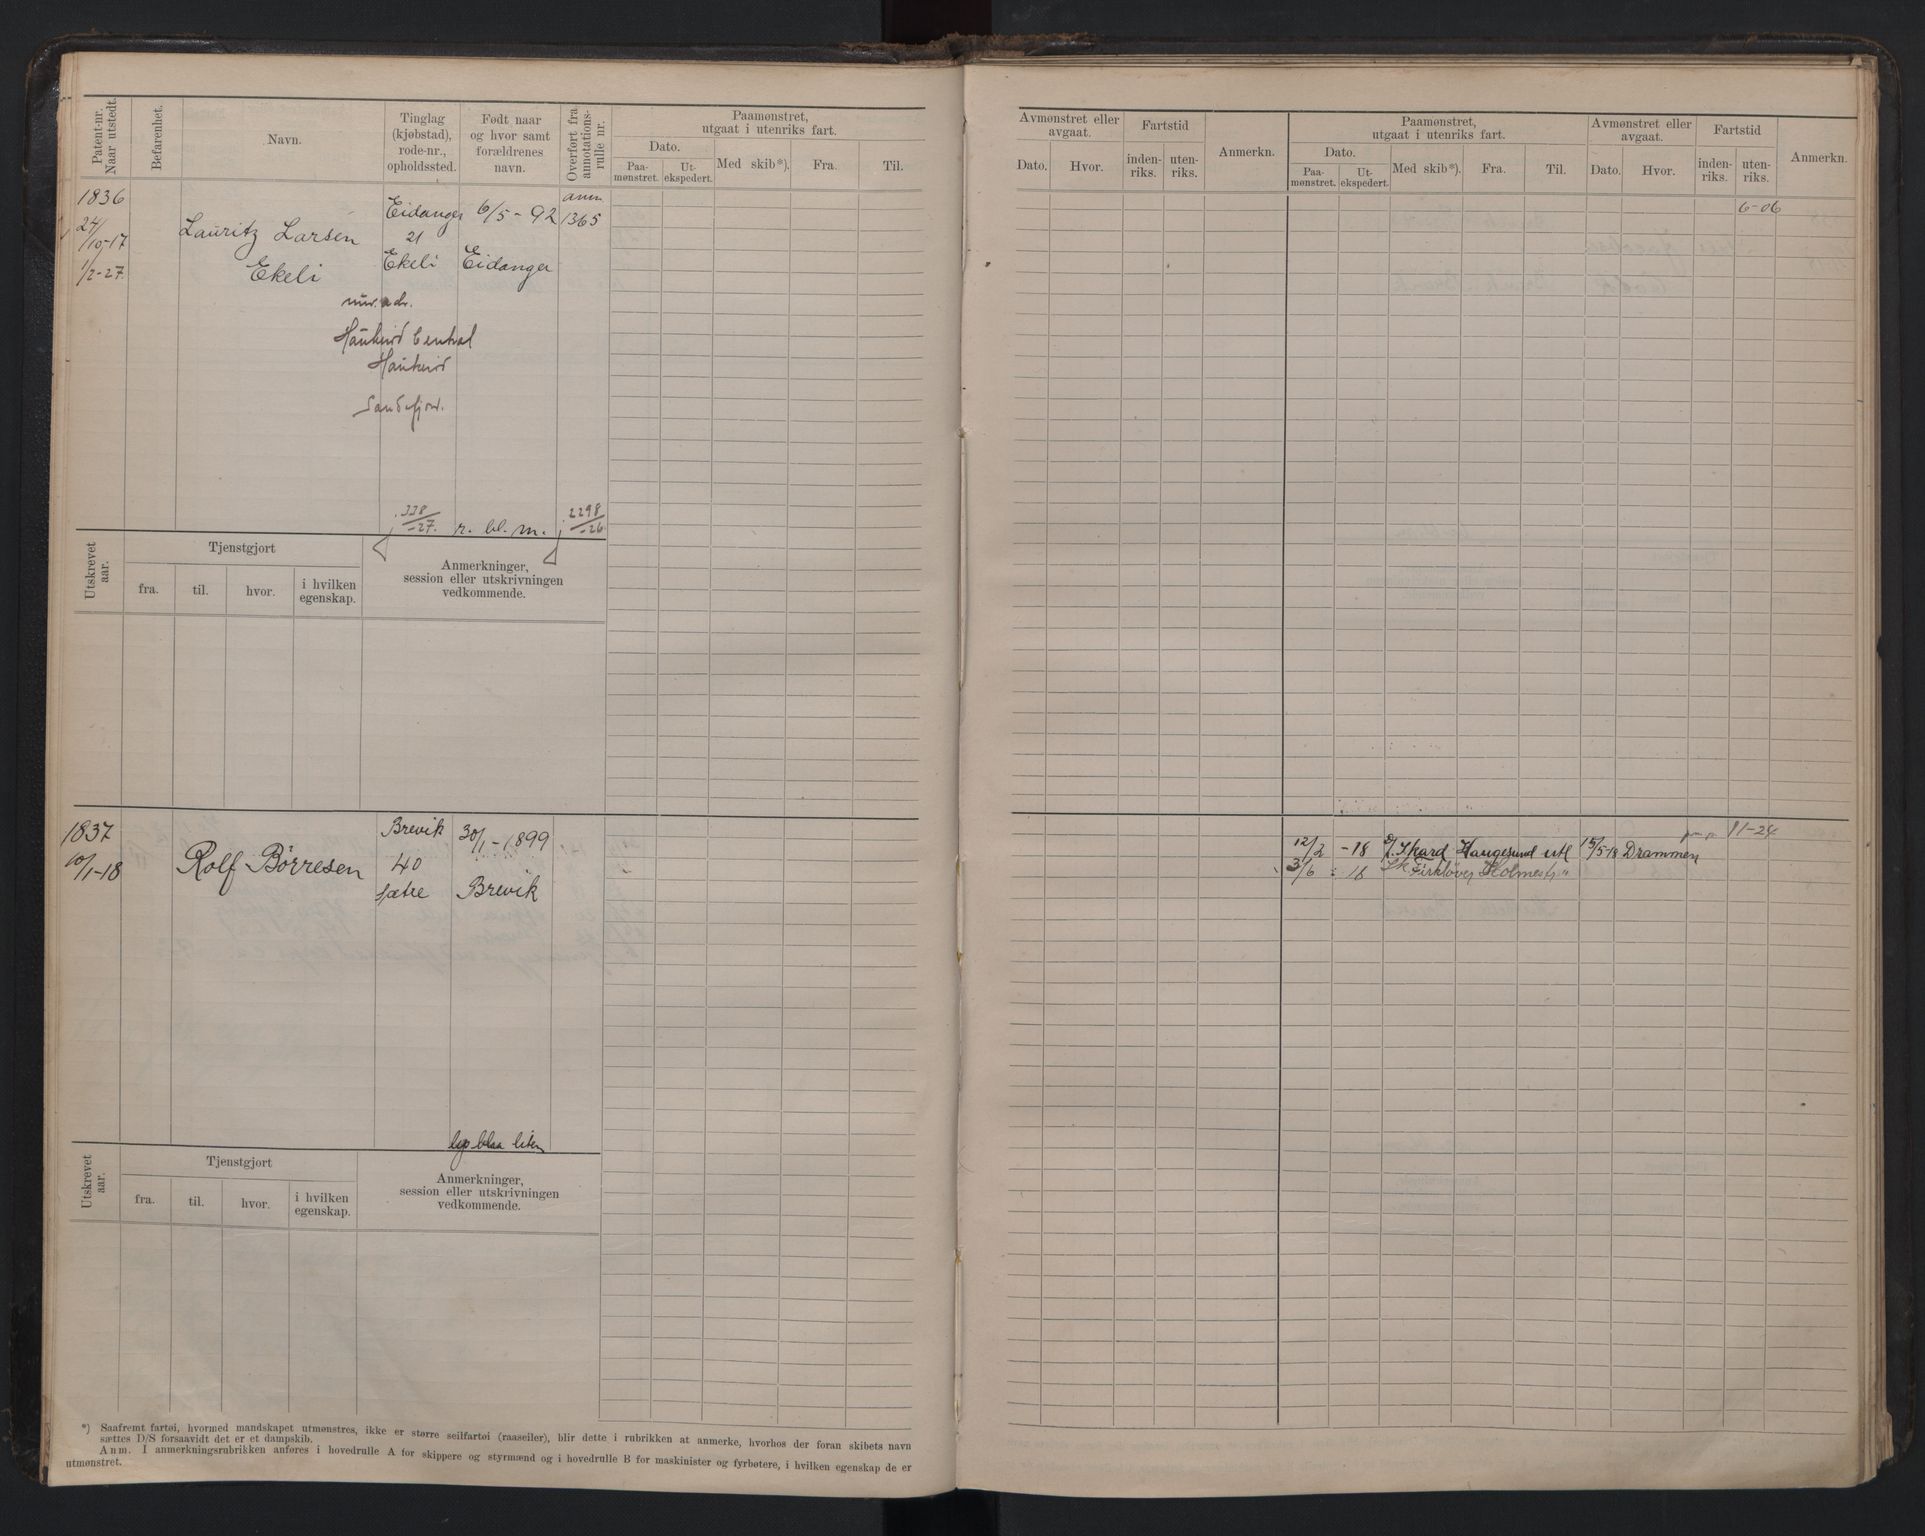 Patent-nr.
Naar utstedt.
Befarenhet.
Navn.
Tinglag
(kjøbstad),
rode-nr.,
opholdssted.
Født naar
og hvor samt
forældrenes
navn.
Overført fra
annotations-
rulle nr.
Paamønstret,
utgaat i utenriks fart.
Dato.
Paa-
mønstret.
Ut-
ekspedert.
Med skib*).
Fra.
Til.
1836
24/10-17
1/2-27
Lauritz Larsen
Ekeli
Eidanger
21
Ekeli
6/5-92
Eidanger
ann
1365
nuv. adr.
Haukerød Central
Haukerød
Sandefjord.
j. 338/-27. r. bl. m. j 2298/-26
Utskrevet
aar.
Tjenstgjort
fra.
til.
hvor.
i hvilken
egenskap.
Anmerkninger,
session eller utskrivningen
vedkommende.
1837
10/1-18
Rolf Børresen
Brevik
40
Sætre
30/1-1899
Brevik
blaa liten
Utskrevet
aar.
Tjenstgjort
fra.
til.
hvor.
i hvilken
egenskap.
Anmerkninger,
session eller utskrivningen
vedkommende.
*) Saafremt fartøi, hvormed mandskapet utmønstres, ikke er større seilfartøi (raaseiler), blir dette i rubrikken at anmerke, hvorhos der foran skibets navn
sættes D/S forsaavidt det er et dampskib.
Anm. I anmerkningsrubrikken anføres i hovedrulle A for skippere og styrmænd og i hovedrulle B for maskinister og fyrbøtere, i hvilken egenskap de er
utmønstret.
Avmønstret eller
avgaat.
Dato.
Hvor.
Fartstid
inden-
riks.
uten-
riks.
Anmerkn.
Paamønstret,
utgaat i utenriks fart.
Dato.
Paa-
mønstret.
Ut-
ekspedert.
Med skib*).
Fra.
Til.
Avmønstret eller
avgaat.
Dato.
Hvor.
Fartstid
inden-
riks.
uten-
riks.
Anmerkn.
6-06
11-24
12/2 -18 Skard Haugesund utl 15/5-18 Drammen
3/6 " 18 Sk Firkløver Holmestr "